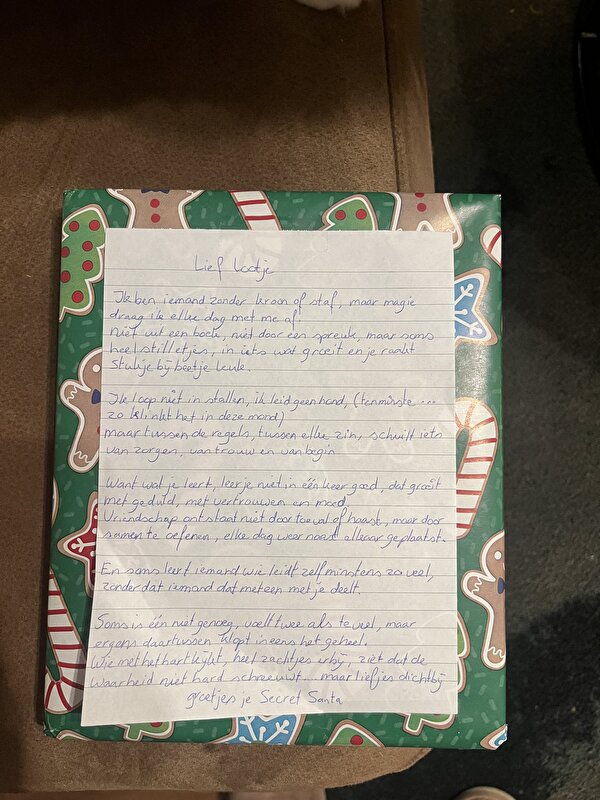 Lief Lootje
Ik ben iemand zonder kroon of staf, maar magie
draag ik elke dag met me af.
niet uit een boek, niet door een spreuk, maar soms
heel stilletjes, in iets wat groeit en je raakt
Stukje bij beetje leuk.
Ik loop niet in stallen, ik leid geen hond, (tenminste ....
zo klinkt het in deze mond)
maar tussen de regels, tussen elke zin, schuilt iets
van zorgen, vantrouw en van begin
Want wat je leert, leer je niet in één keer goed, dat groeit
met geduld, met vertrouwen en moed
Vriendschap ontstaat niet door toeval of haast, maar door
samen te oefenen, elke dag weer naast elkaar geplaatst.
En soms leert iemand wie leidt zelf minstens zo veel,
zonder dat iemand dat meteen met je deelt.
Soms is één niet genoeg, voelt twee als te veel, maar
ergens daartussen klopt ineens het geheel.
Wie met het hart kijkt, heel zachtjes erbij, ziet dat de
waarheid niet hard schreeuwt... maar liefjes dichtbij
groetjes je Secret Santa